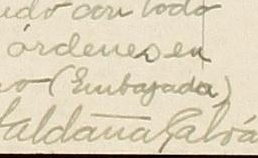 udo con todo
órdenes en
o (Embajada)
Saldaña Galvá